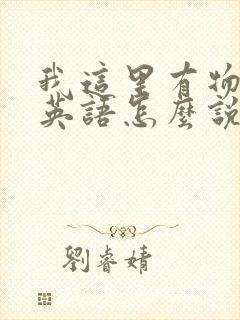 我這里有物
英語怎麼說
劉睿婧